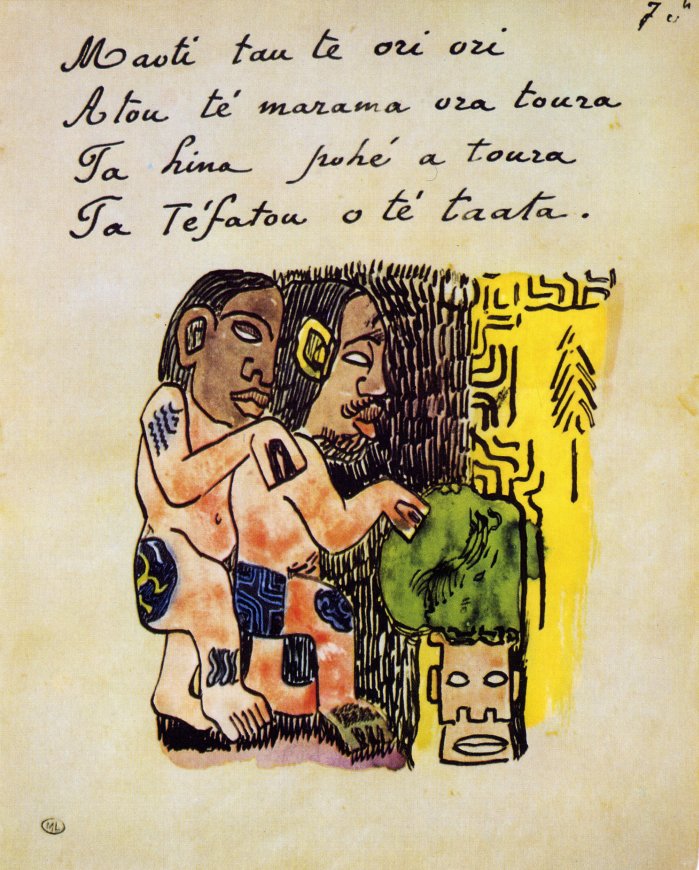 Maoti tau te ori ori
Atou té marama ora toura
Ta hina pohé a toura
Ta Téfatou o té taata.
ML